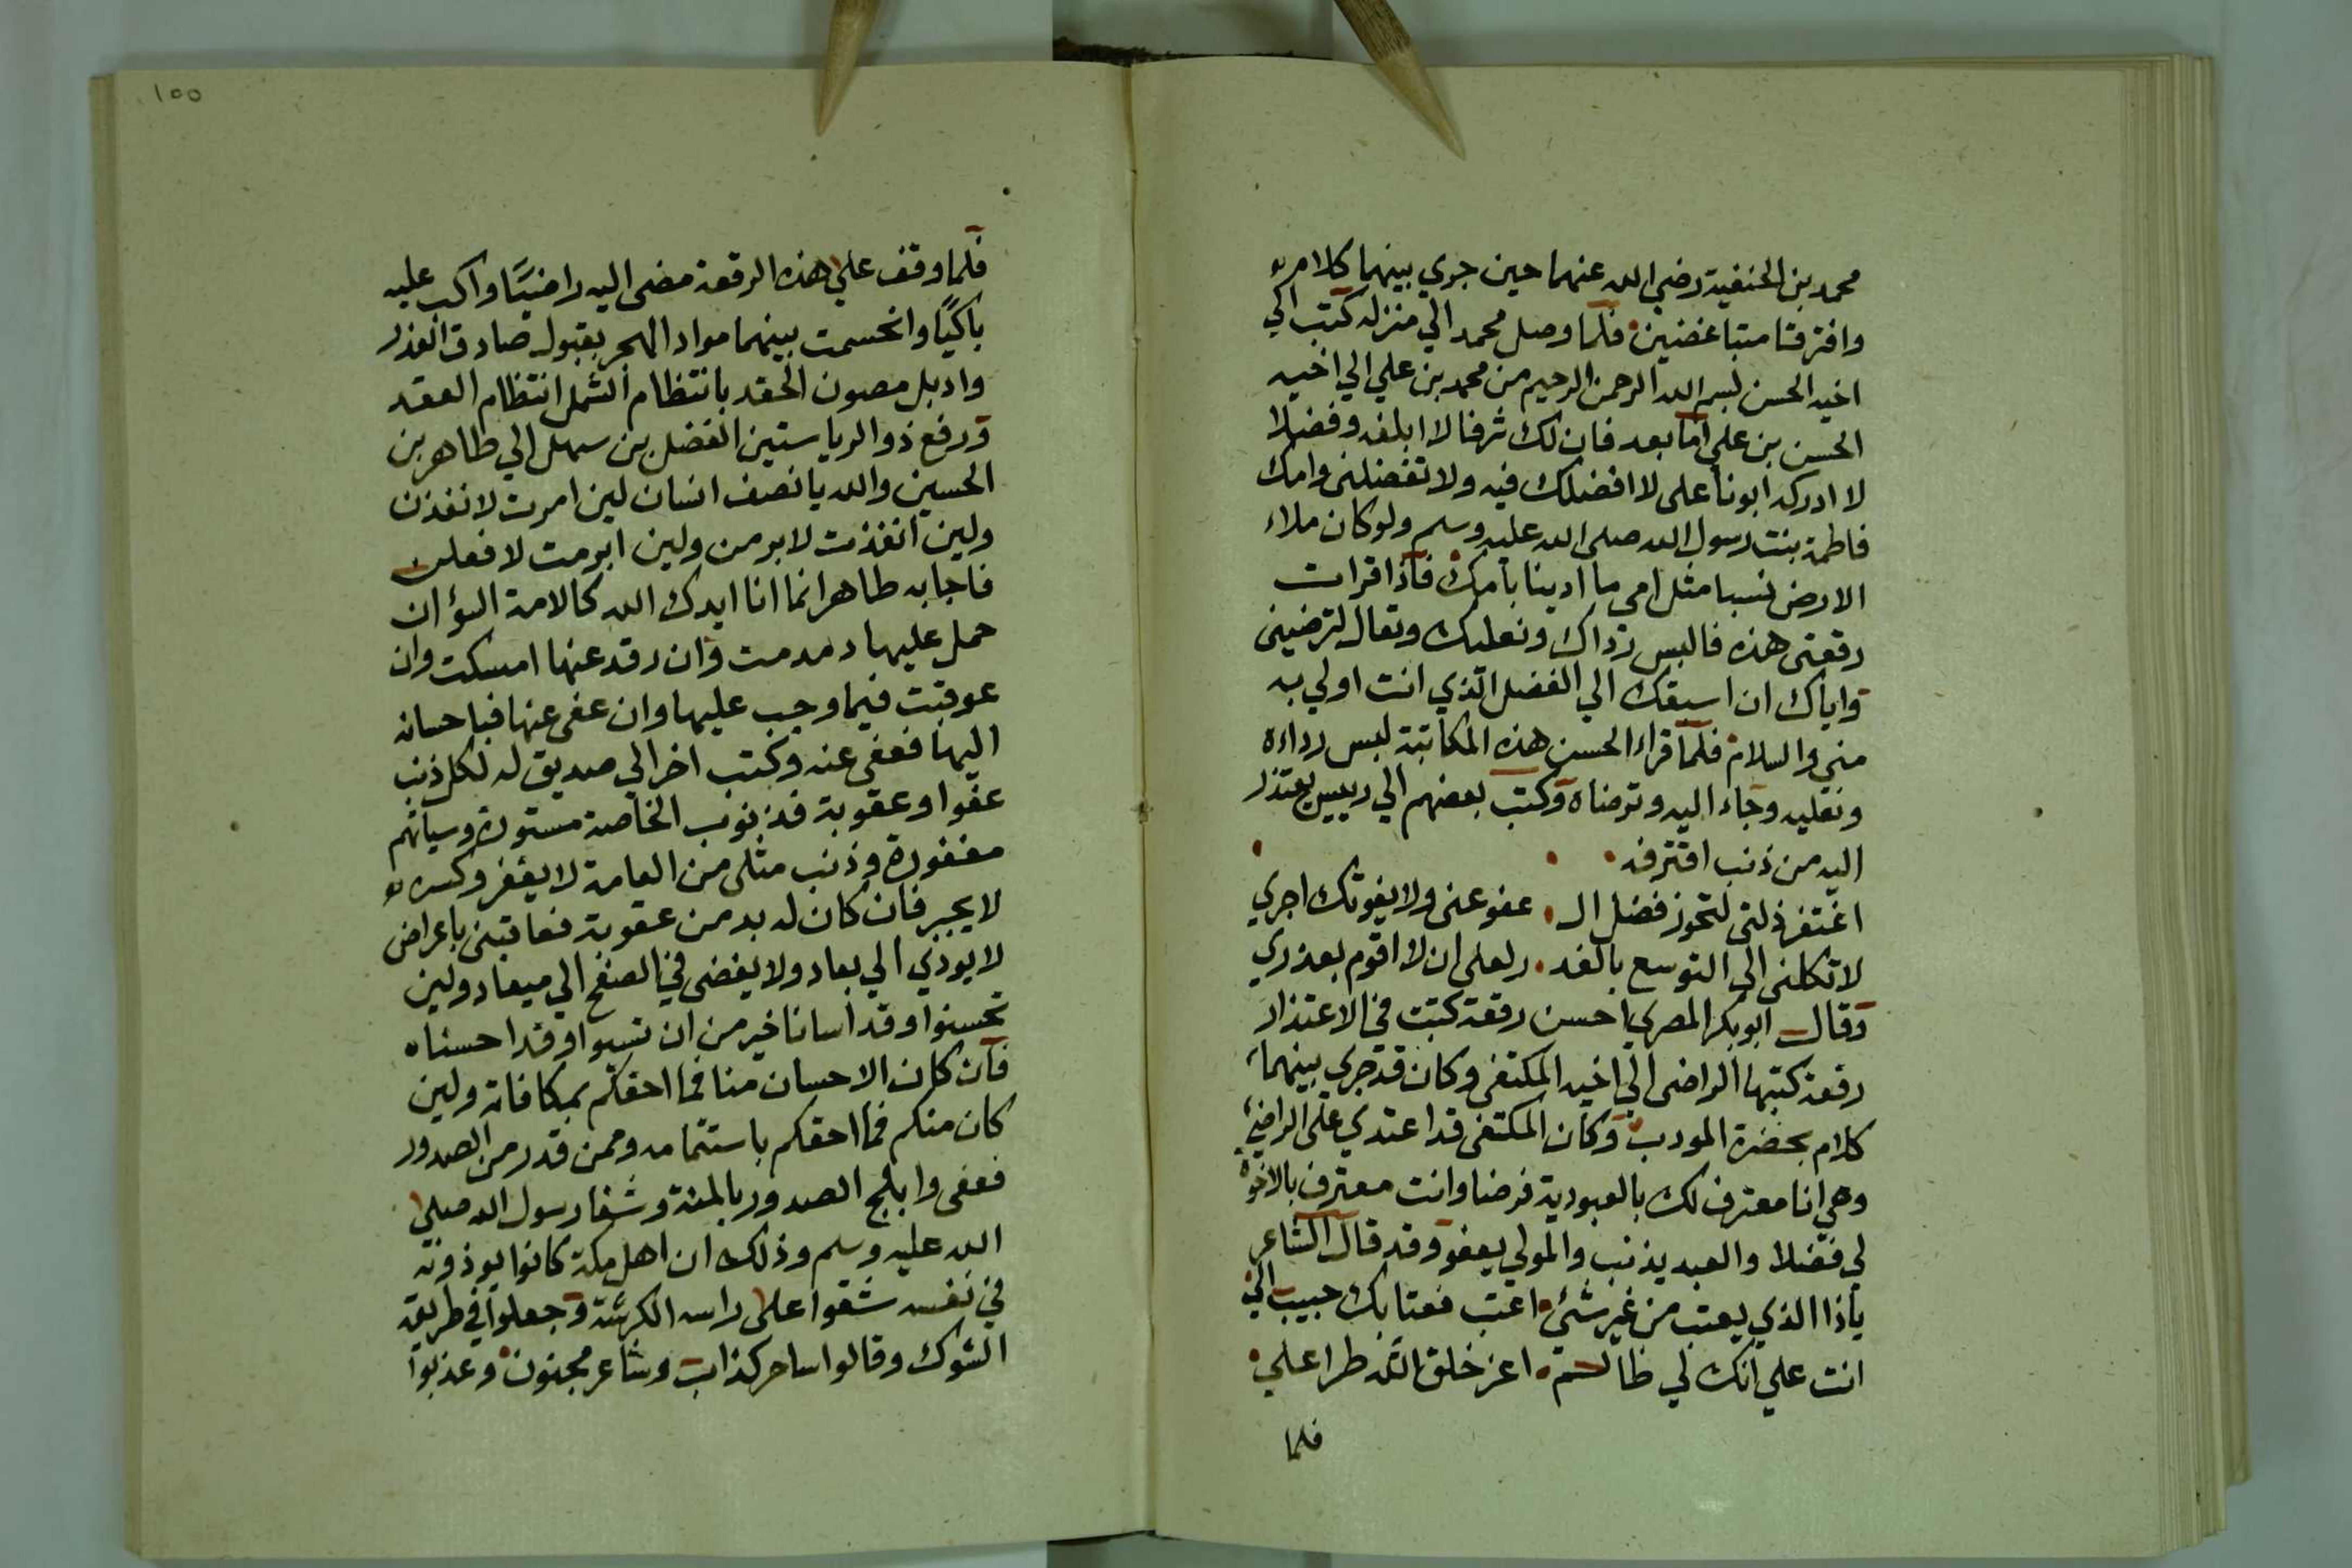 محمد بن الحنفية رضي الله عنهما حين جري بينهما كلام
وافترقتا متباغضين فلما وصل محمد الي منزله كتب الي
اخيه الحسن بسم الله الرحمن الرحيم من محمد بن علي الي اخيه
الحسن بن علي اما بعد فان لك شرفا لا ابلغه وفضلا
لا ادركه ابونا علي لا افضلك فيه ولا تفضلني وامك
فاطمة بنت رسول الله صلي الله عليه وسلم ولو كان ملاء
الارض نسبا مثل امي ما ادينا بامك فاذا قرات
رقعتي هذه فالبس رداك ونعليك وتعال لترضيني
واياك ان اسبقك الي الفضل الذي انت اولي به
مني والسلام فلما قراء الحسن هذه المكاتبة لبس رداءه
ونعليه وجاء اليه وترضاه وكتب بعضهم الي رييس يعتذر
اليه من ذنب اقترفه
اغتفر زلتي لتحوز فضل ال عفو عني ولا يفوتك اجري
لا تكلني الي التوسع بالغد ر لعلي ان لا اقوم بعذري
وقال ابو بكر المصري احسن رقعة كتبت في الاعتذار
رقعة كتبها الراضي الي اخيه المكتفي وكان قد جري بينهما
كلام بحضرة المودب وكان المكتفي قد اعتدي علي الراضي
وهي انا معترف لك بالعبودية فرضا وانت معترف بالاخوة
لي فضلا والعبد يذنب والمولي يعفو وقد قال الشاعر
ياذا الذي يعتب من غير شئ اعتب فعتابك حبيب الي
انت علي انك لي ظالم اعز خلق الله طرا علي
فلما
١٥٥
فلما وقف علي هذه الرقعة مضي اليه راضيًا واكب عليه
باكيًا وانحسمت بينهما مواد الهجر بقبول صادق العذر
وادبل مصون الحقد بانتظام الشمل انتظام العقد
ورفع ذو الرياستين الفضل بن سهل الي طاهر بن
الحسين والله يا نصف انسان لين امرت لانفذن
ولين انفذت لابرمن ولين ابرمت لافعلن
فاجابه طاهر انما انا ايدك الله كالامة السؤ ان
حمل عليها دمدمت وان رقد عنها امسكت وان
عوقبت فيما وجب عليها وان عفي عنها فباحسان
اليها فعفي عنه وكتب اخر الي صديق له لكل ذنب
عفوا وعقوبة فذنوب الخاصة مستورة وسياتهم
مغفورة وذنب مثلي من العامة لا يغفر وكسره
لا يجبر فان كان له بد من عقوبة فعاقبني باعراض
لا يوذي الي بعاد ولا يفضي في الصفح الي ميعاد ولين
تحسنوا وقد اسانا خير من ان تسيوا وقد احسناه
فان كان الاحسان منا فما احقكم بمكافاته ولين
كان منكم فما احقكم باستتمامه وممن قدر من الصدور
فعفي وابلج الصدور بالمنة وشفا رسول الله صلي
الله عليه وسلم وذلك ان اهل مكة كانوا يوذونه
في نفسه شقوا علي راسه الكرشة وجعلوا في طريقه
الشوك وقالوا ساحر كذاب وشاعر مجنون وعذبوا